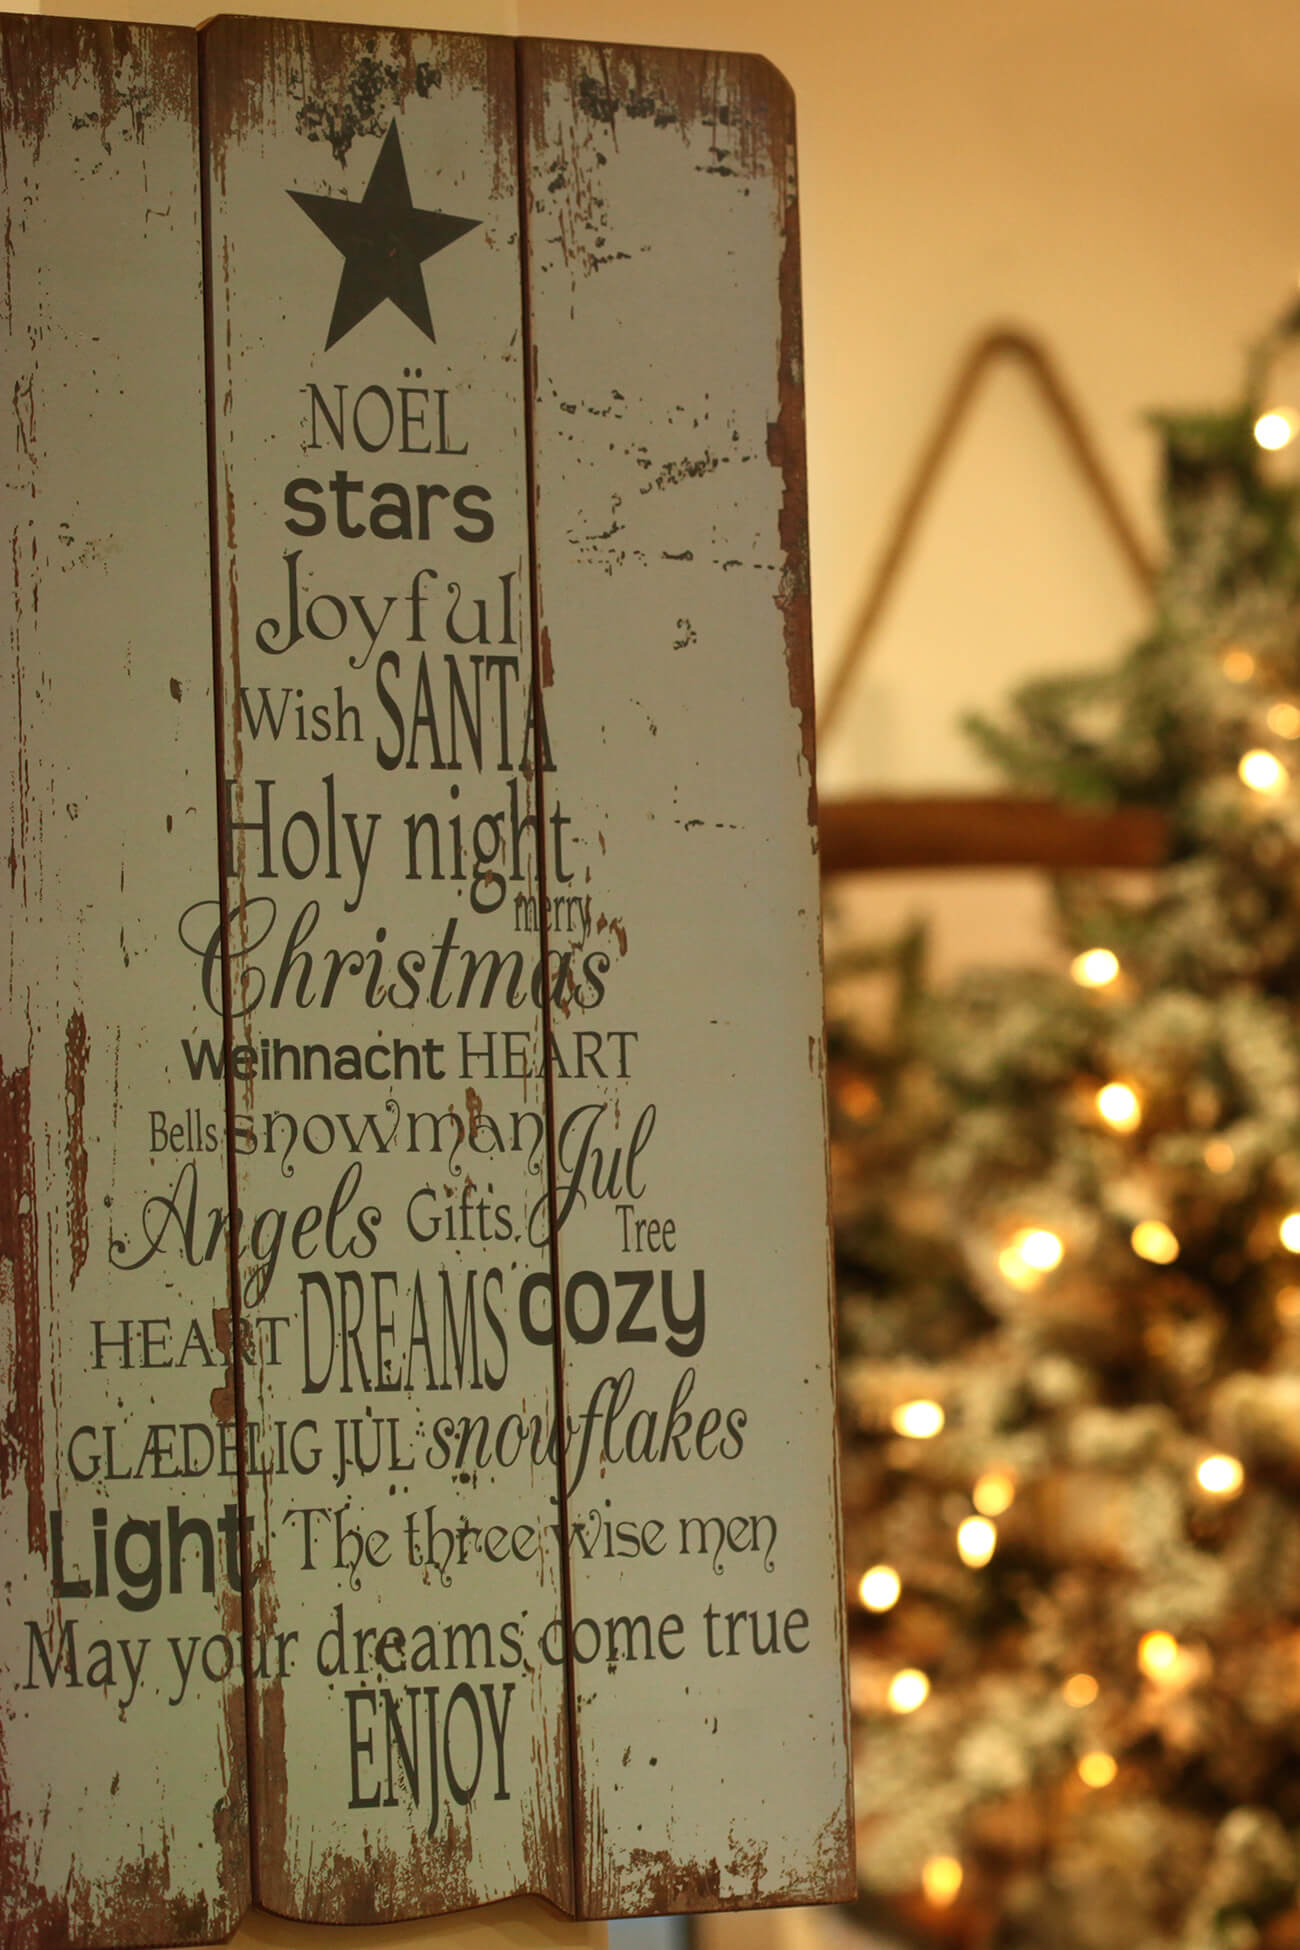 NOËL
stars
Joyful
Wish SANTA
Holy night
merry
Christmas
Weihnacht HEART
Bells snowman Jul
Angels Gifts Tree
HEART DREAMS cozy
GLÆDELIG JUL snowflakes
Light The three wise men
May your dreams come true
ENJOY